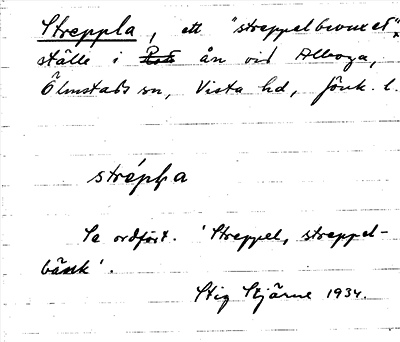 Streppla, ett "streppelbevuxet"
ställe i ån vid Alboga,
Ölmstads sn, Vista hd, Jönk. l.
strépḷa
Se ordfört. 'Streppel, streppel-
bänk'.
Stig Stjärne 1934.